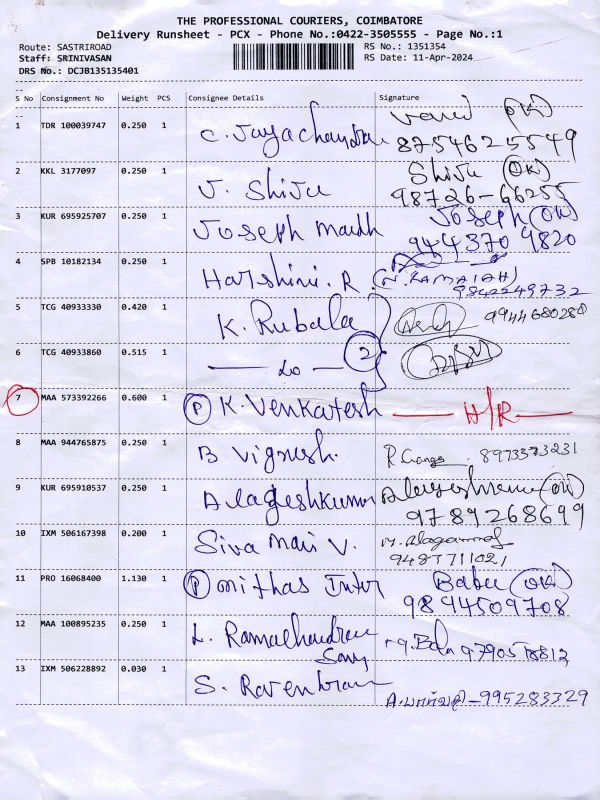 THE PROFESSIONAL COURIERS, COIMBATORE
Delivery Runsheet - PCX - Phone No.:0422-3505555 - Page No.:1
Route: SASTRIROAD RS No.: 1351354
Staff: SRINIVASAN RS Date: 11-Apr-2024
DRS No.: DCJB135135401
S No Consignment No Weight PCS Consignee Details Signature
1 TDR 100039747 0.250 1 C. Jayachandran (OK)
8754625549
2 KKL 3177097 0.250 1 J. Shiju Shiju (OK)
98726-66255
3 KUR 695925707 0.250 1 Joseph Joseph (OK)
944370 9820
4 SPB 10182134 0.250 1 Harshini. R (N. RAMAIAH)
9842249732
5 TCG 40933330 0.420 1 K. Rubala 9944680280
6 TCG 40933860 0.515 1 — Do — 2
7 MAA 573392266 0.600 1 (P) K. Venkatesh — H/R —
8 MAA 944765875 0.250 1 B Vignesh. R Ganga. 8973373231
9 KUR 695910537 0.250 1 Alageshkumar (OK)
9789268699
10 IXM 506167398 0.200 1 Siva Mari V.
9487711021
11 PRO 16068400 1.130 1 (P) Mithas Inter Babu (OK)
9894509708
12 MAA 100895235 0.250 1 L. Ramachandran Bala
13 IXM 506228892 0.030 1 S. A. -995283329